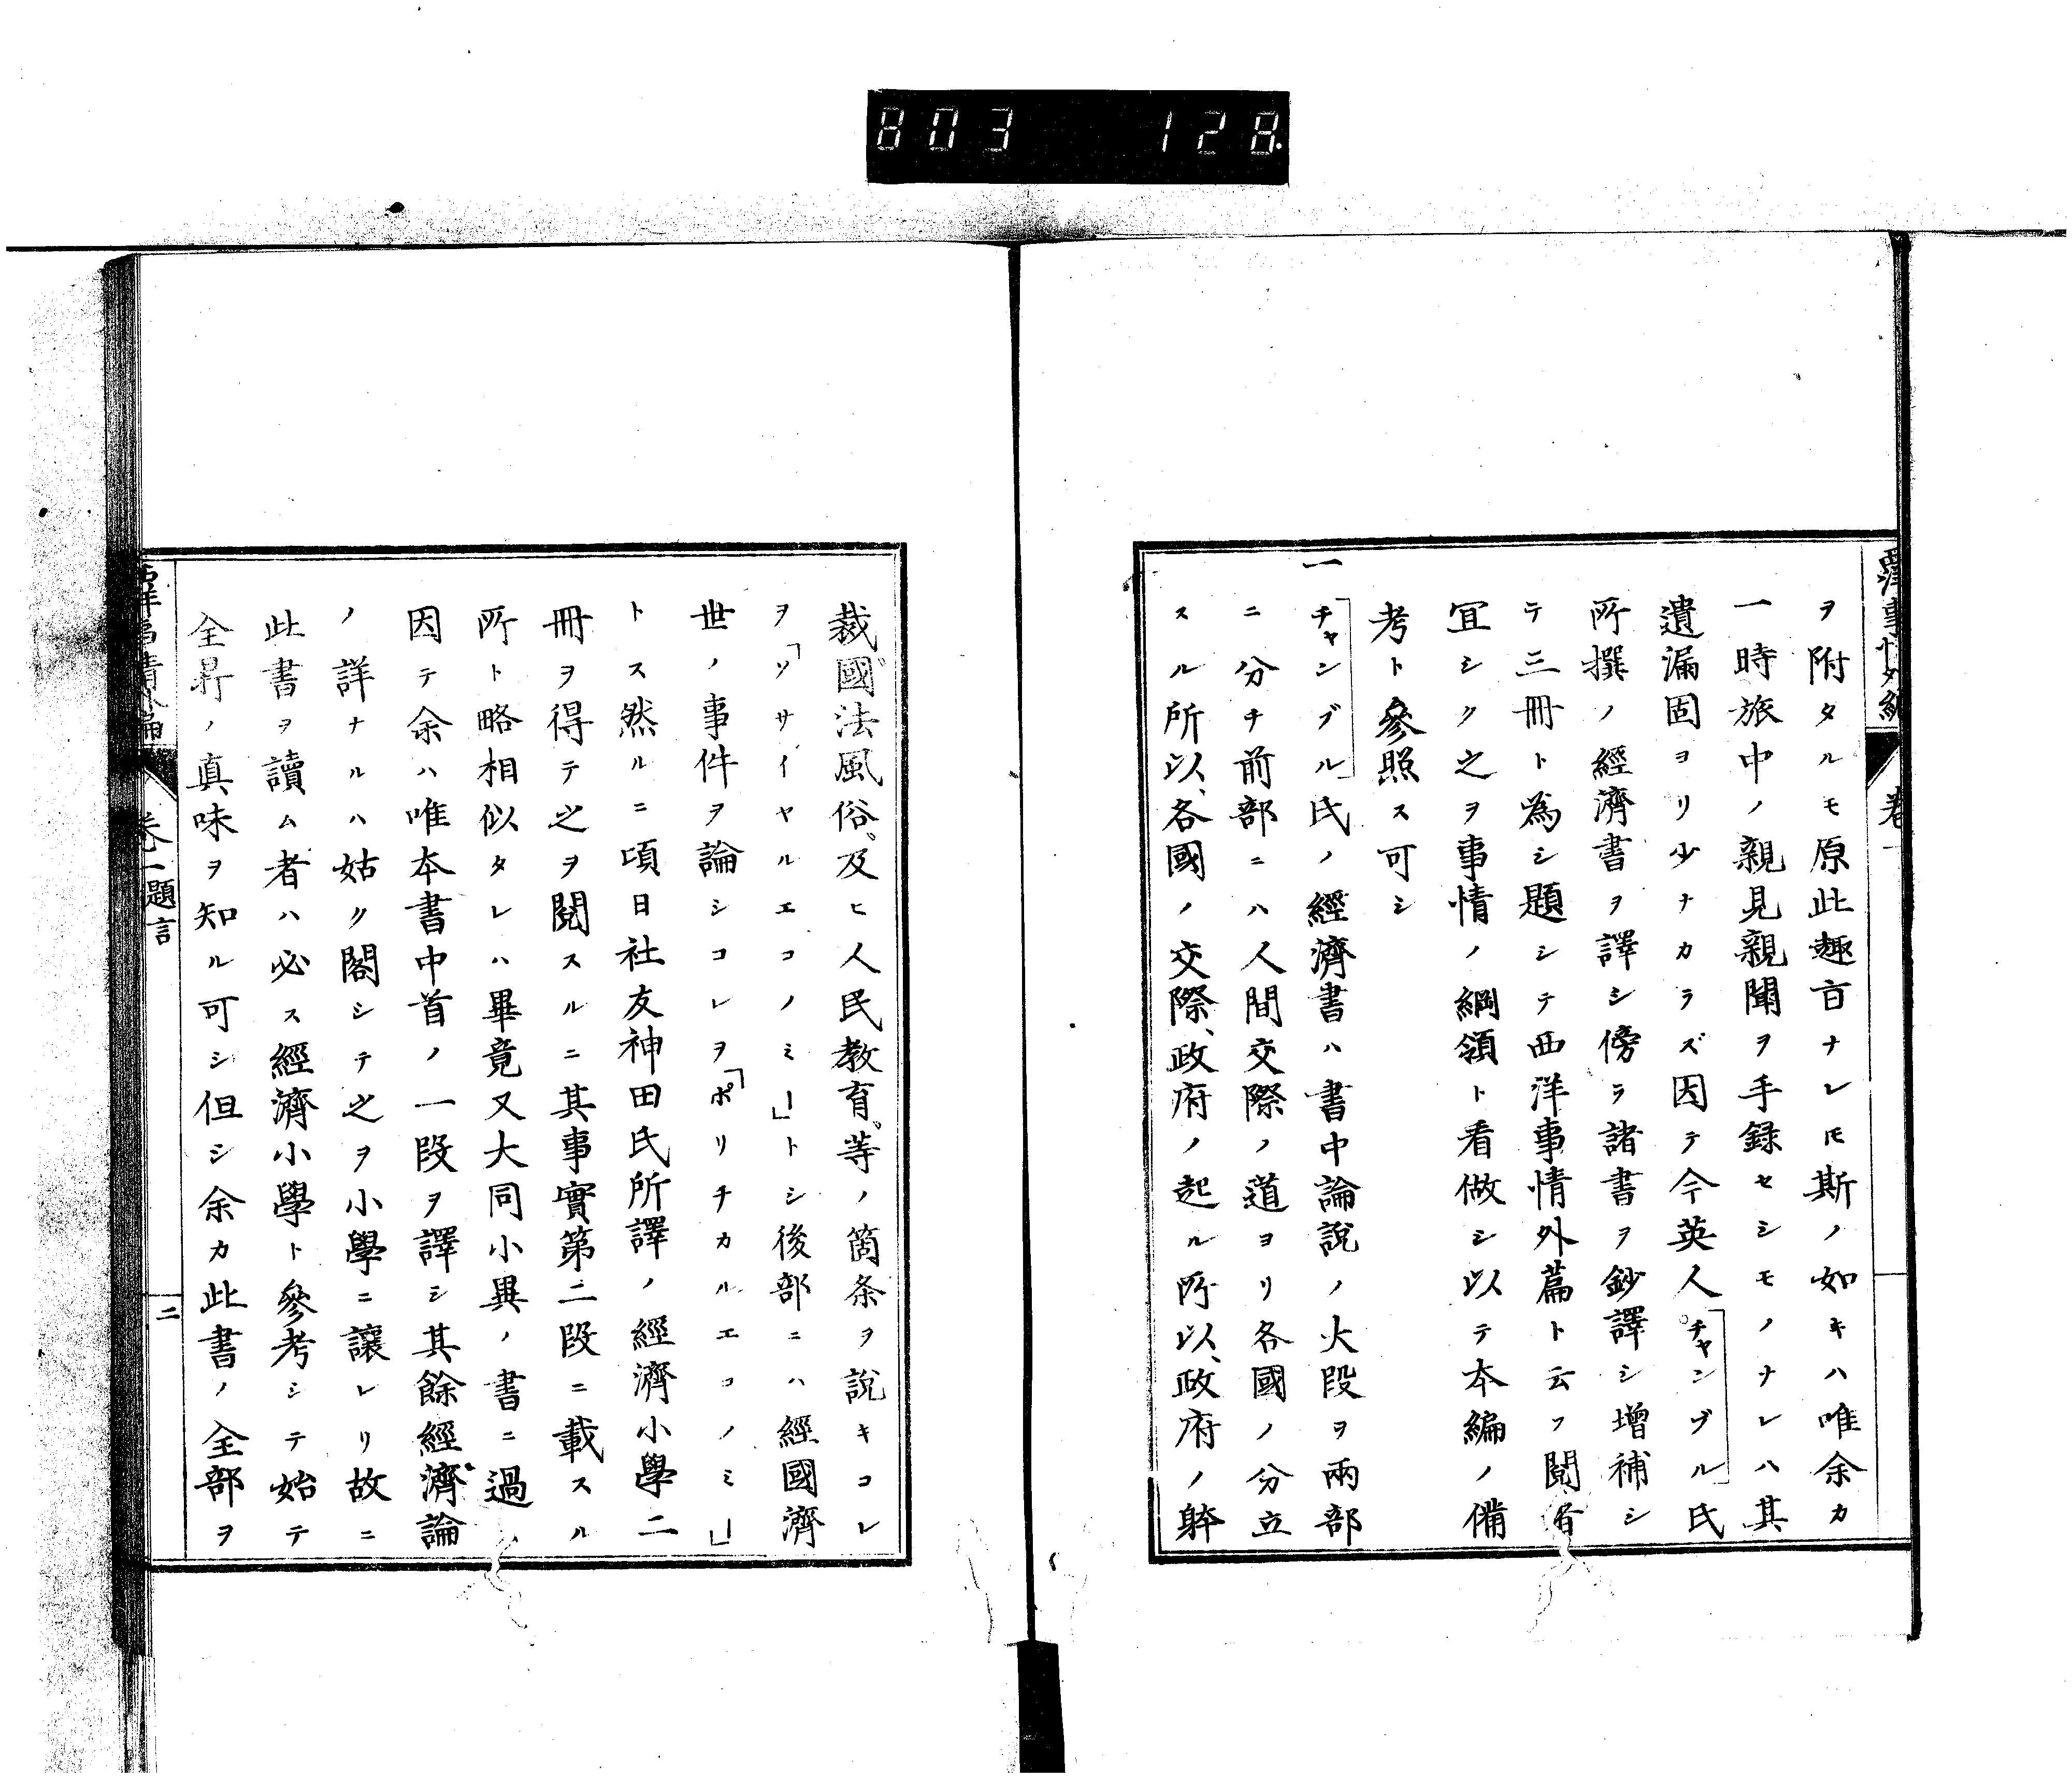 803 128
ヲ附タルモ原此趣旨ナレ𪜈斯ノ如キハ唯余カ
一時旅中ノ親見親聞ヲ手録セシモノナレハ其
遺漏固ヨリ少ナカラズ因テ今英人「チャンブル」氏
所撰ノ經濟書ヲ譯シ傍ラ諸書ヲ鈔譯シ増補シ
テ三冊ト為シ題シテ西洋事情外篇ト云フ閲者
宜シク之ヲ事情ノ綱領ト看做シ以テ本編ノ備
考ト參照ス可シ
一「チャンブル」氏ノ經濟書ハ書中論説ノ大段ヲ兩部
ニ分チ前部ニハ人間交際ノ道ヨリ各國ノ分立
スル所以、各國ノ交際、政府ノ起ル所以、政府ノ躰
裁、國法風俗、及ヒ人民教育、等ノ箇条ヲ説キコレ
ヲ「ソサイヤルエコノミー」トシ後部ニハ經國濟
世ノ事件ヲ論シコレヲ「ポリチカルエコノミー」
トス然ルニ頃日社友神田氏所譯ノ經濟小學二
冊ヲ得テ之ヲ閲スルニ其事實第二段ニ載スル
所ト略相似タレハ畢竟又大同小異ノ書ニ過
因テ余ハ唯本書中首ノ一段ヲ譯シ其餘經濟論
ノ詳ナルハ姑ク閣シテ之ヲ小學ニ讓レリ故ニ
此書ヲ讀ム者ハ必ス經濟小學ト參考シテ始テ
全舛ノ真味ヲ知ル可シ但シ余カ此書ノ全部ヲ
卷一題言
二